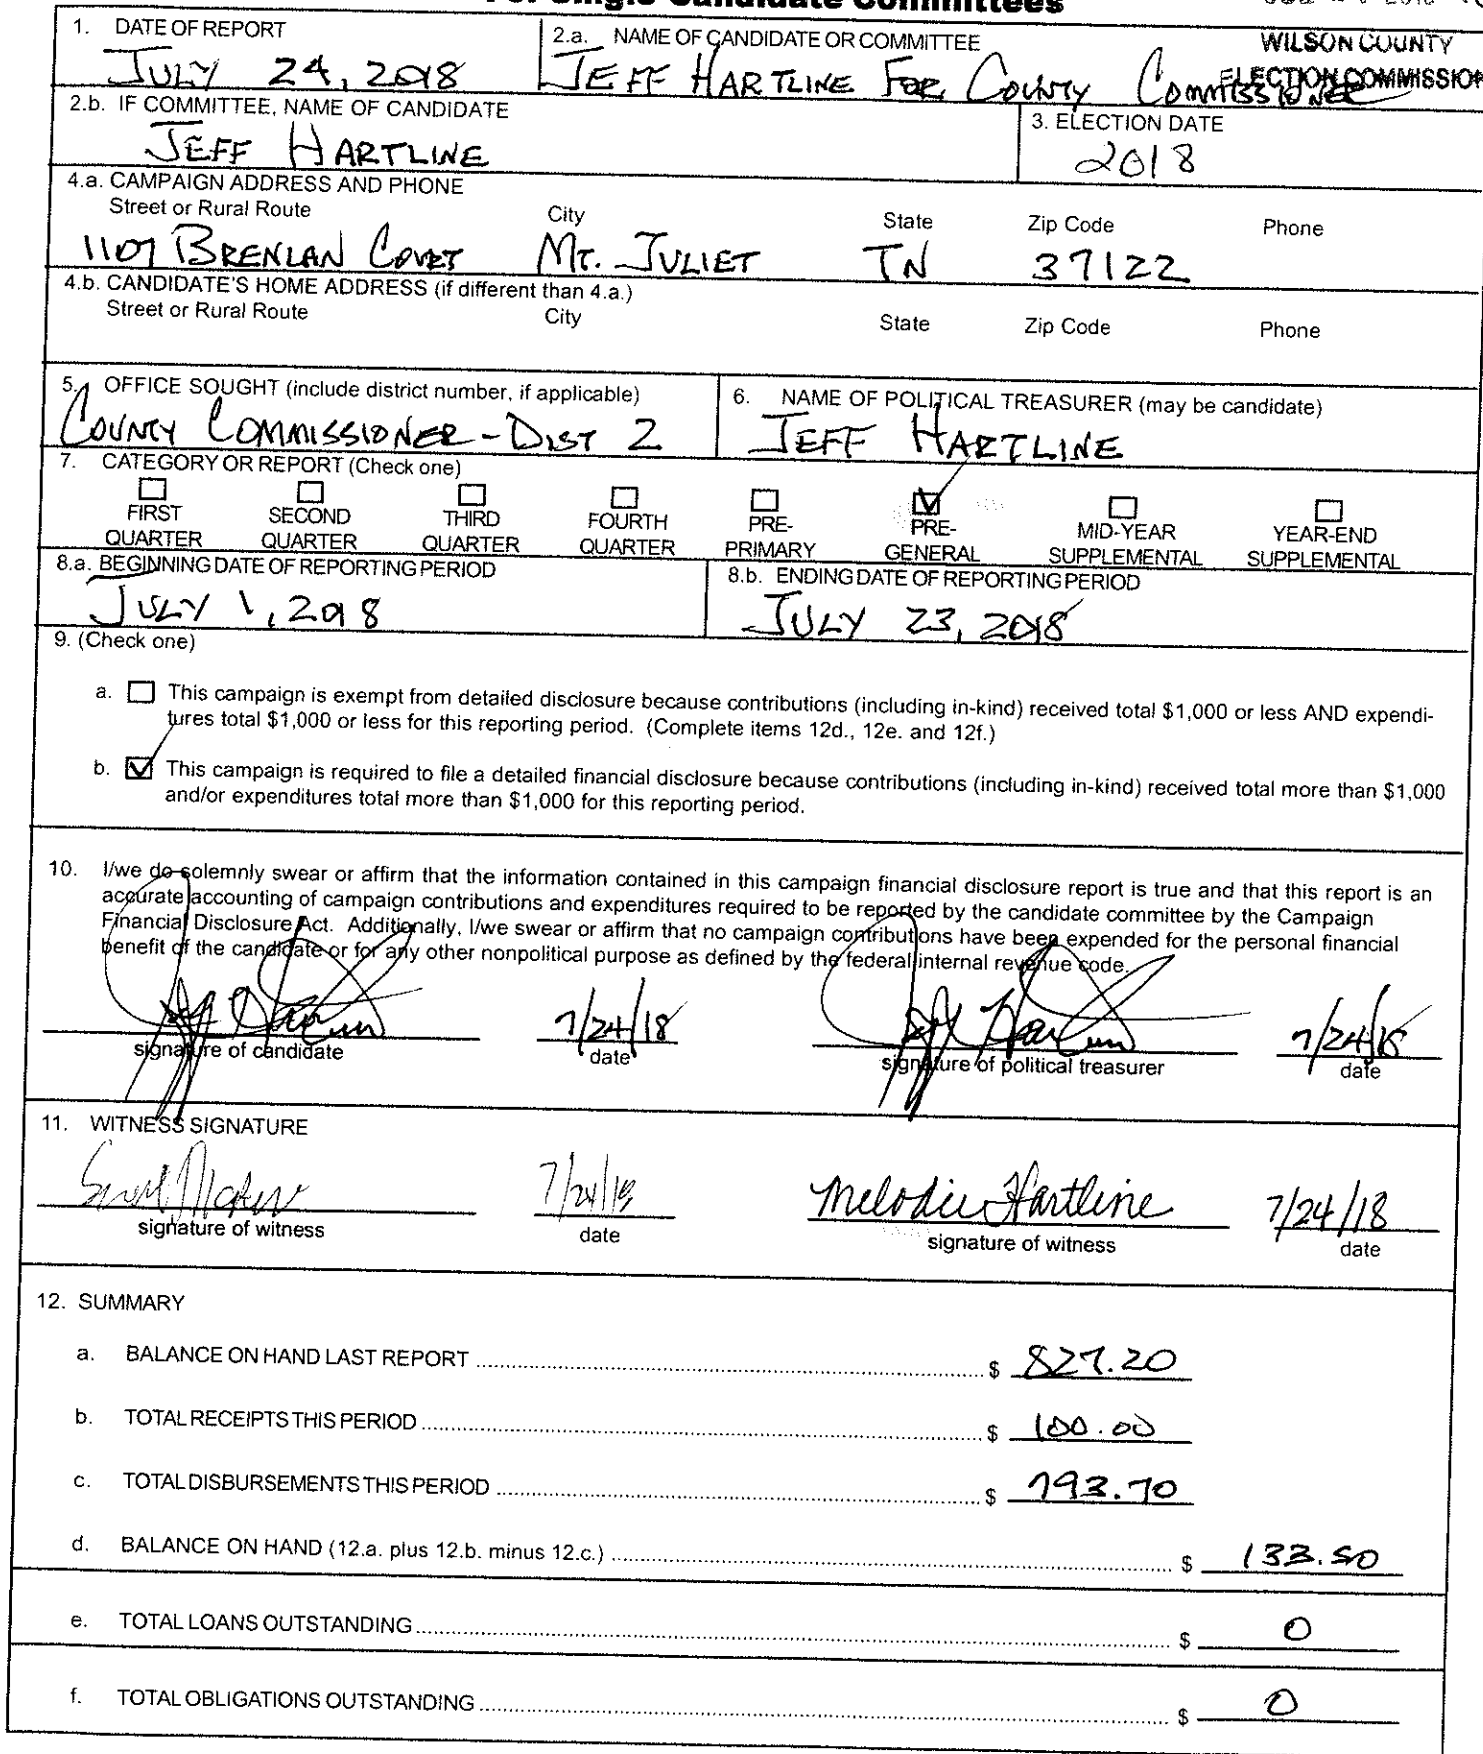 For Single Candidate Committees
WILSON COUNTY
ELECTION COMMISSION
1. DATE OF REPORT
JULY 24, 2018
2.a. NAME OF CANDIDATE OR COMMITTEE
JEFF HARTLINE FOR COUNTY COMMISSIONER
2.b. IF COMMITTEE, NAME OF CANDIDATE
JEFF HARTLINE
3. ELECTION DATE
2018
4.a. CAMPAIGN ADDRESS AND PHONE
Street or Rural Route City State Zip Code Phone
1107 BRENLAN COURT MT. JULIET TN 37122
4.b. CANDIDATE'S HOME ADDRESS (if different than 4.a.)
Street or Rural Route City State Zip Code Phone
5. OFFICE SOUGHT (include district number, if applicable)
COUNTY COMMISSIONER - DIST 2
6. NAME OF POLITICAL TREASURER (may be candidate)
JEFF HARTLINE
7. CATEGORY OR REPORT (Check one)
FIRST QUARTER
SECOND QUARTER
THIRD QUARTER
FOURTH QUARTER
PRE-PRIMARY
PRE-GENERAL
MID-YEAR SUPPLEMENTAL
YEAR-END SUPPLEMENTAL
8.a. BEGINNING DATE OF REPORTING PERIOD
JULY 1, 2018
8.b. ENDING DATE OF REPORTING PERIOD
JULY 23, 2018
9. (Check one)
a. This campaign is exempt from detailed disclosure because contributions (including in-kind) received total $1,000 or less AND expendi-
tures total $1,000 or less for this reporting period. (Complete items 12d., 12e. and 12f.)
b. This campaign is required to file a detailed financial disclosure because contributions (including in-kind) received total more than $1,000
and/or expenditures total more than $1,000 for this reporting period.
10. I/we do solemnly swear or affirm that the information contained in this campaign financial disclosure report is true and that this report is an
accurate accounting of campaign contributions and expenditures required to be reported by the candidate committee by the Campaign
Financial Disclosure Act. Additionally, I/we swear or affirm that no campaign contributions have been expended for the personal financial
benefit of the candidate or for any other nonpolitical purpose as defined by the federal internal revenue code.
7/24/18 7/24/18
signature of candidate date signature of political treasurer date
11. WITNESS SIGNATURE
7/24/18 Melodie Hartline 7/24/18
signature of witness date signature of witness date
12. SUMMARY
a. BALANCE ON HAND LAST REPORT $ 827.20
b. TOTAL RECEIPTS THIS PERIOD $ 100.00
c. TOTAL DISBURSEMENTS THIS PERIOD $ 793.70
d. BALANCE ON HAND (12.a. plus 12.b. minus 12.c.) $ 133.50
e. TOTAL LOANS OUTSTANDING $ 0
f. TOTAL OBLIGATIONS OUTSTANDING $ 0